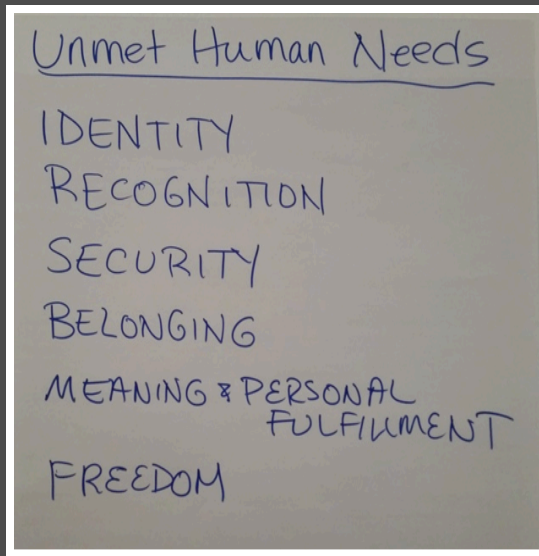 Unmet Human Needs
IDENTITY
RECOGNITION
SECURITY
BELONGING
MEANING & PERSONAL
FULFILLMENT
FREEDOM